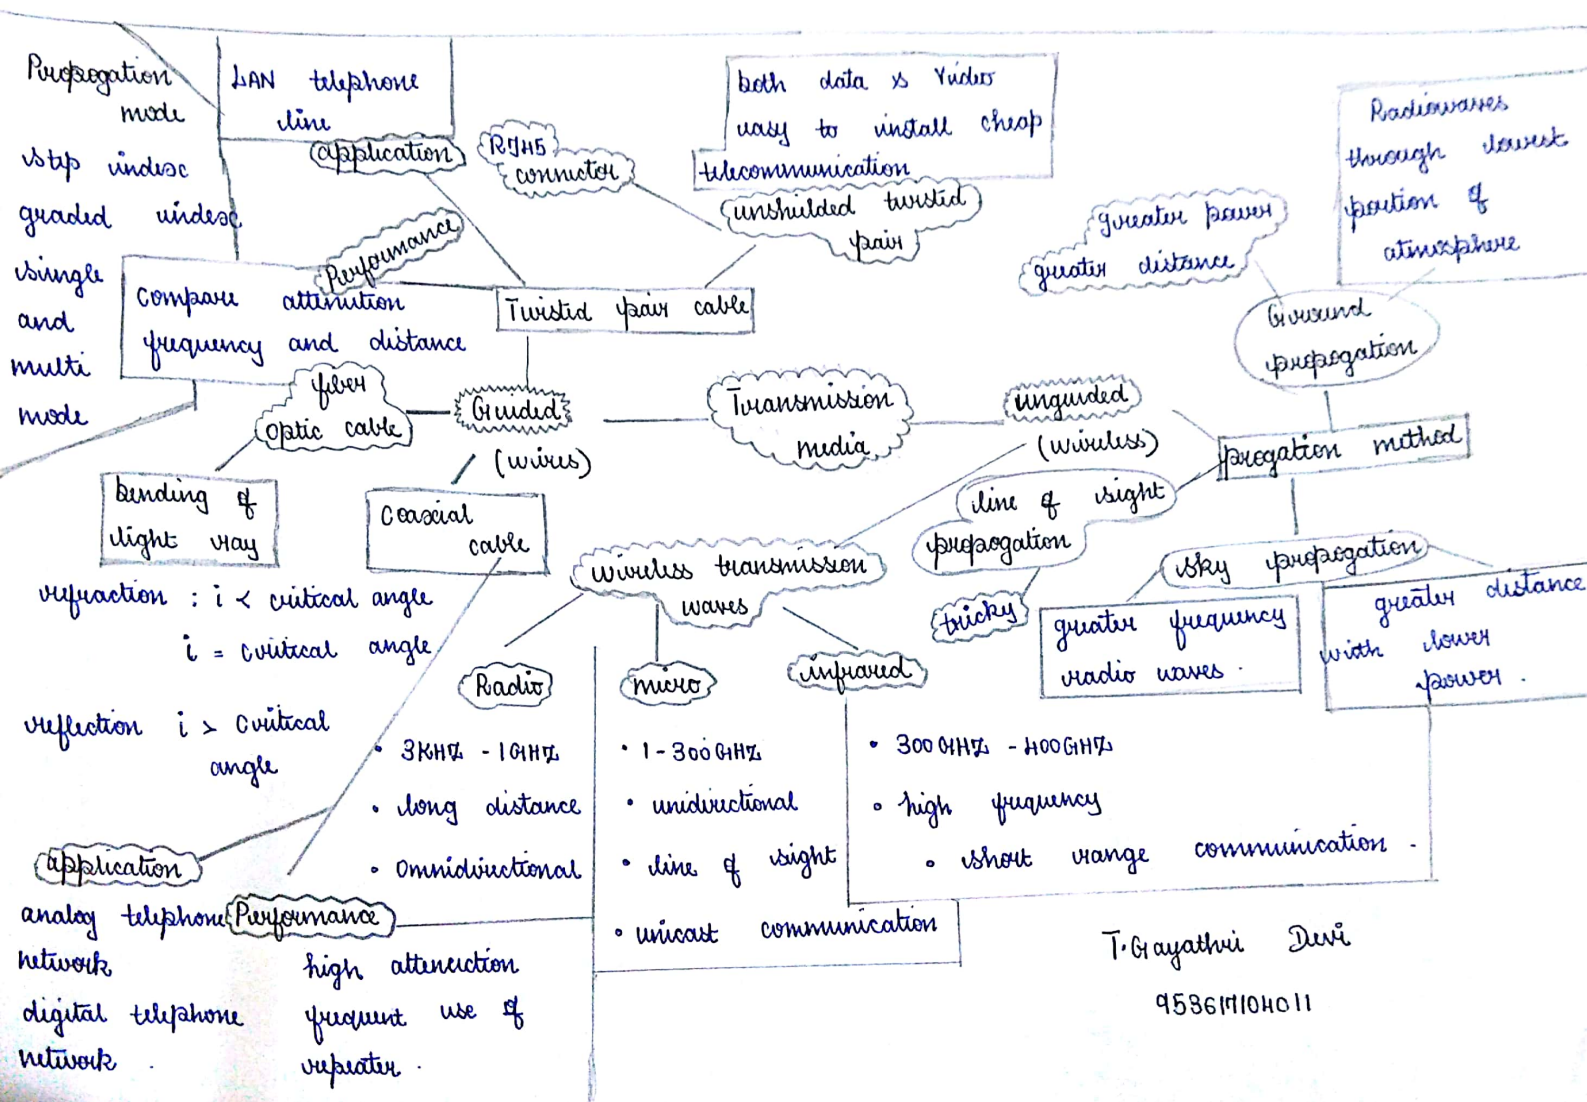 Propogation
mode
step index
graded index
single
and
multi
mode
LAN telephone
line
application
RJ45
connector
both data & Video
easy to install cheap
telecommunication
unshilded twisted
pair
Performance
compare attenution
frequency and distance
Twisted pair cable
greater power
greater distance
Radiowaves
through lowest
portion of
atmosphere
Ground
propogation
fiber
optic cable
Guided
(wires)
Transmission
media
unguided
(wireless)
progation method
bending of
light ray
coaxial
cable
line of sight
propogation
tricky
sky propogation
greater frequency
radio waves.
greater distance
with lower
power.
refraction : i < critical angle
i = critical angle
reflection i > critical
angle
wireless transmission
waves
Radio
• 3KHZ - 1GHZ
• long distance
• Omnidirectional
micro
• 1-300GHZ
• unidirectional
• line of sight
• unicast communication
infrared
• 300GHZ - 400GHZ
• high frequency
• short range communication.
application
analog telephone
network
digital telephone
network.
Performance
high attenuction
frequent use of
repeater.
T.Gayathri Devi
953617104011